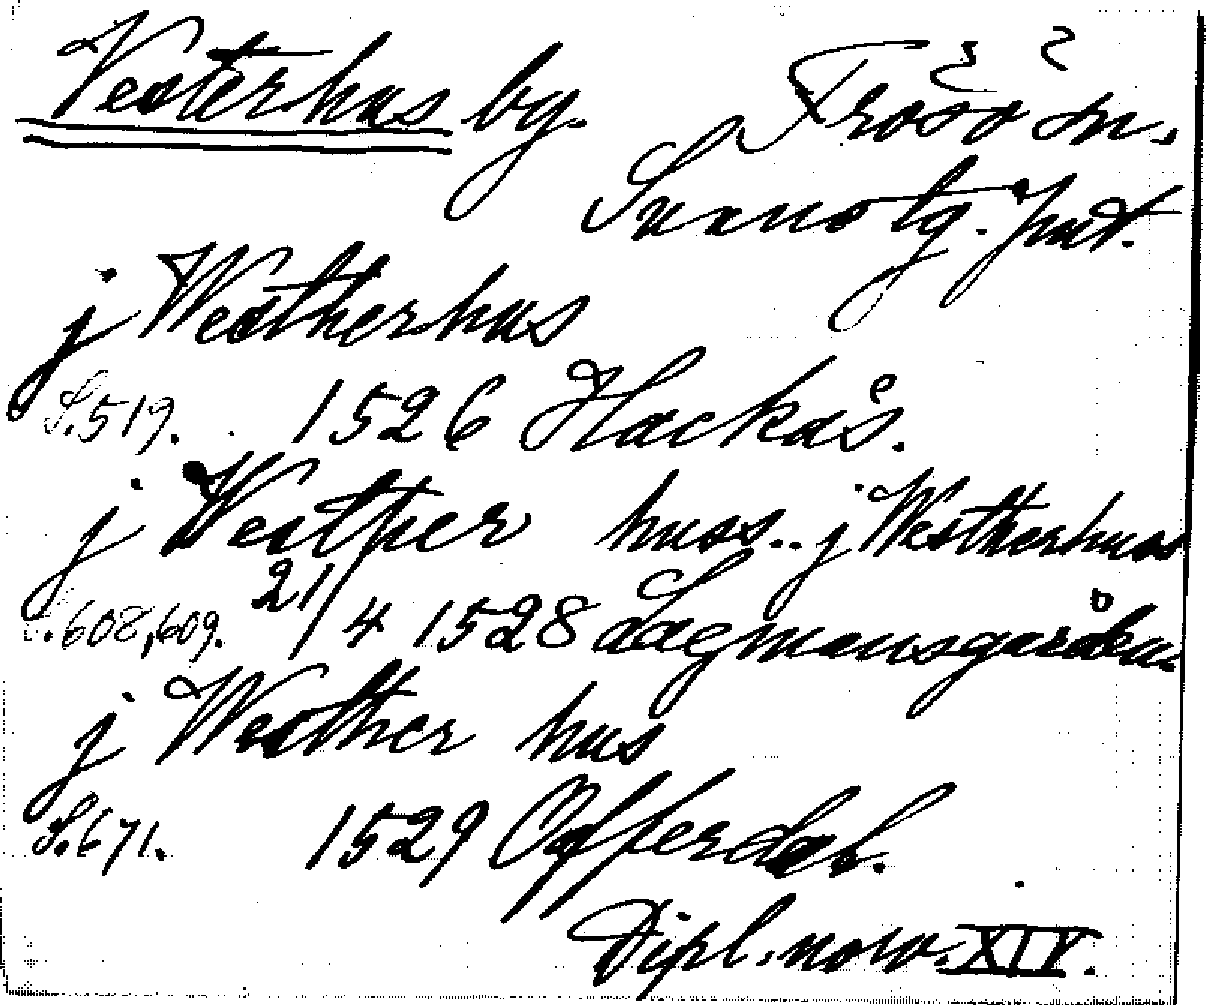 Vesterhus by. Frösö sn.
Sunne tg. Jmt.
j Westherhus
S. 519. 1526 Hackås.
j Westher huss.. j Westherhuss
S. 608, 609. 21/4 1528 Lagmansgården.
j Westher hus
S. 671. 1529 Offerdal.
Dipl. norv. XIV.